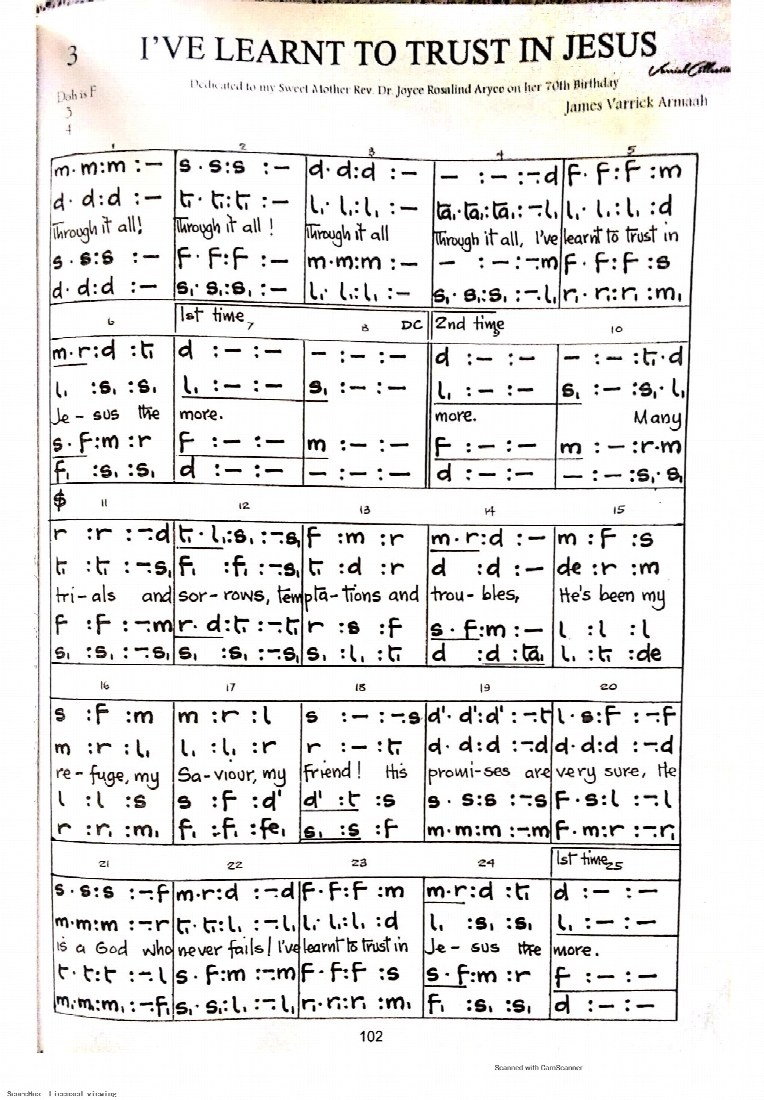 3
I'VE LEARNT TO TRUST IN JESUS
Dedicated to my Sweet Mother Rev. Dr. Joyce Rosalind Aryee on her 70th Birthday
Doh is F
James Varrick Armaah
3
4
1 2 3 4 5
m·m:m :— | s·s:s :— | d·d:d :— | — :— :-·d | f·f:f :m
d·d:d :— | t₁·t₁:t₁ :— | l₁·l₁:l₁ :— | ta₁·ta₁:ta₁ :-·l₁ | l₁·l₁:l₁ :d
Through it all! Through it all! Through it all Through it all, I've learnt to trust in
s·s:s :— | f·f:f :— | m·m:m :— | — :— :-·m | f·f:f :s
d·d:d :— | s₁·s₁:s₁ :— | l₁·l₁:l₁ :— | s₁·s₁:s₁ :-·l₁ | r₁·r₁:r₁ :m₁
6 1st time 7 8 DC 2nd time 9 10
m·r:d :t₁ | d :— :— | — :— :— | d :— :— | — :— :t₁·d
l₁ :s₁ :s₁ | l₁ :— :— | s₁ :— :— | l₁ :— :— | s₁ :— :s₁·l₁
Je - sus the more. more. Many
s·f:m :r | f :— :— | m :— :— | f :— :— | m :— :r·m
f₁ :s₁ :s₁ | d :— :— | — :— :— | d :— :— | — :— :s₁·s₁
$ 11 12 13 14 15
r :r :-·d | t₁·l₁:s₁ :-·s₁ | f :m :r | m·r:d :— | m :f :s
t₁ :t₁ :-·s₁ | f₁ :f₁ :-·s₁ | t₁ :d :r | d :d :— | de :r :m
tri-als and sor-rows, temp ta-tions and trou-bles, He's been my
f :f :-·m | r·d:t₁ :-·t₁ | r :s :f | s·f:m :— | l :l :l
s₁ :s₁ :-·s₁ | s₁ :s₁ :-·s₁ | s₁ :l₁ :t₁ | d :d :ta₁ | l₁ :t₁ :de
16 17 18 19 20
s :f :m | m :r :l | s :— :-·s | d'·d':d' :-·t | l·s:f :-·f
m :r :l₁ | l₁ :l₁ :r | r :— :t₁ | d·d:d :-·d | d·d:d :-·d
re-fuge, my Sa-viour, my friend! His promi-ses are very sure, He
l :l :s | s :f :d' | d' :t :s | s·s:s :-·s | f·s:l :-·l
r :r₁ :m₁ | f₁ :f₁ :fe₁ | s₁ :s :f | m·m:m :-·m | f·m:r :-·r₁
21 22 23 24 1st time 25
s·s:s :-·f | m·r:d :-·d | f·f:f :m | m·r:d :t₁ | d :— :—
m·m:m :-·r | t₁·t₁:l₁ :-·l₁ | l₁·l₁:l₁ :d | l₁ :s₁ :s₁ | l₁ :— :—
is a God who never fails! I've learnt to trust in Je - sus the more.
t·t:t :-·l | s·f:m :-·m | f·f:f :s | s·f:m :r | f :— :—
m₁·m₁:m₁ :-·f₁ | s₁·s₁:l₁ :-·l₁ | r₁·r₁:r₁ :m₁ | f₁ :s₁ :s₁ | d :— :—
102
Scanned with CamScanner